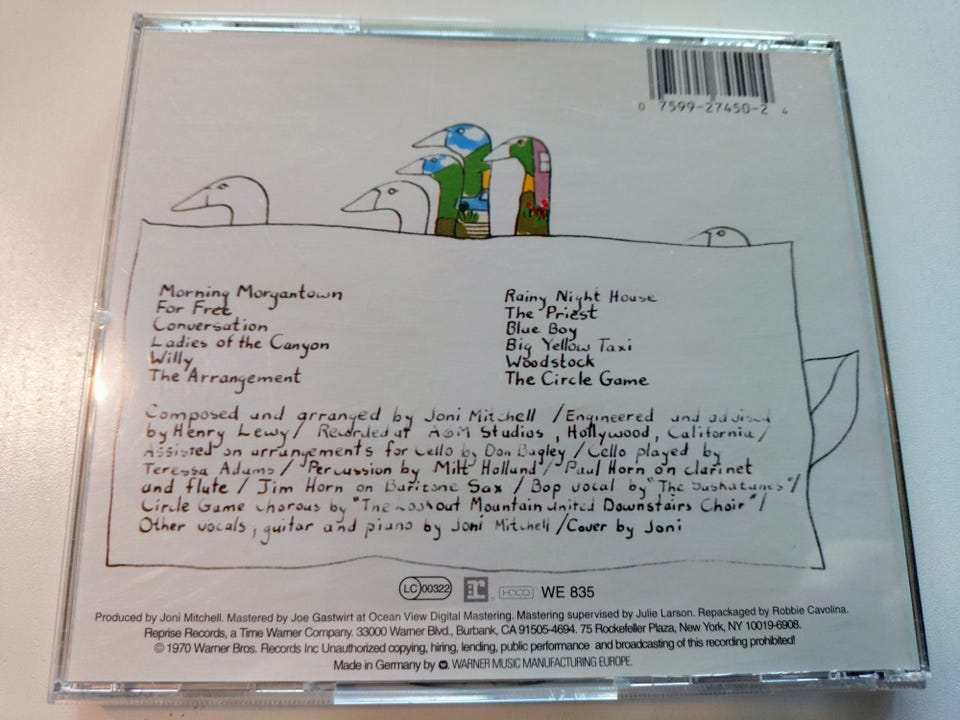 0 7599-27450-2 4
Morning Morgantown
For Free
Conversation
Ladies of the Canyon
Willy
The Arrangement
Rainy Night House
The Priest
Blue Boy
Big Yellow Taxi
Woodstock
The Circle Game
Composed and arranged by Joni Mitchell / Engineered and advised
by Henry Lewy / Recorded at A&M Studios, Hollywood, California /
Assisted on arrangements for Cello by Don Bagley / Cello played by
Teressa Adams / Percussion by Milt Holland / Paul Horn on clarinet
and flute / Jim Horn on Baritone Sax / Bop vocal by "The Saskatunes" /
Circle Game chorous by "The Lookout Mountain United Downstairs Choir" /
Other vocals, guitar and piano by Joni Mitchell / Cover by Joni
LC 00322 r HDCD WE 835
Produced by Joni Mitchell. Mastered by Joe Gastwirt at Ocean View Digital Mastering. Mastering supervised by Julie Larson. Repackaged by Robbie Cavolina.
Reprise Records, a Time Warner Company. 33000 Warner Blvd., Burbank, CA 91505-4694. 75 Rockefeller Plaza, New York, NY 10019-6908.
© 1970 Warner Bros. Records Inc Unauthorized copying, hiring, lending, public performance and broadcasting of this recording prohibited!
Made in Germany by WARNER MUSIC MANUFACTURING EUROPE.